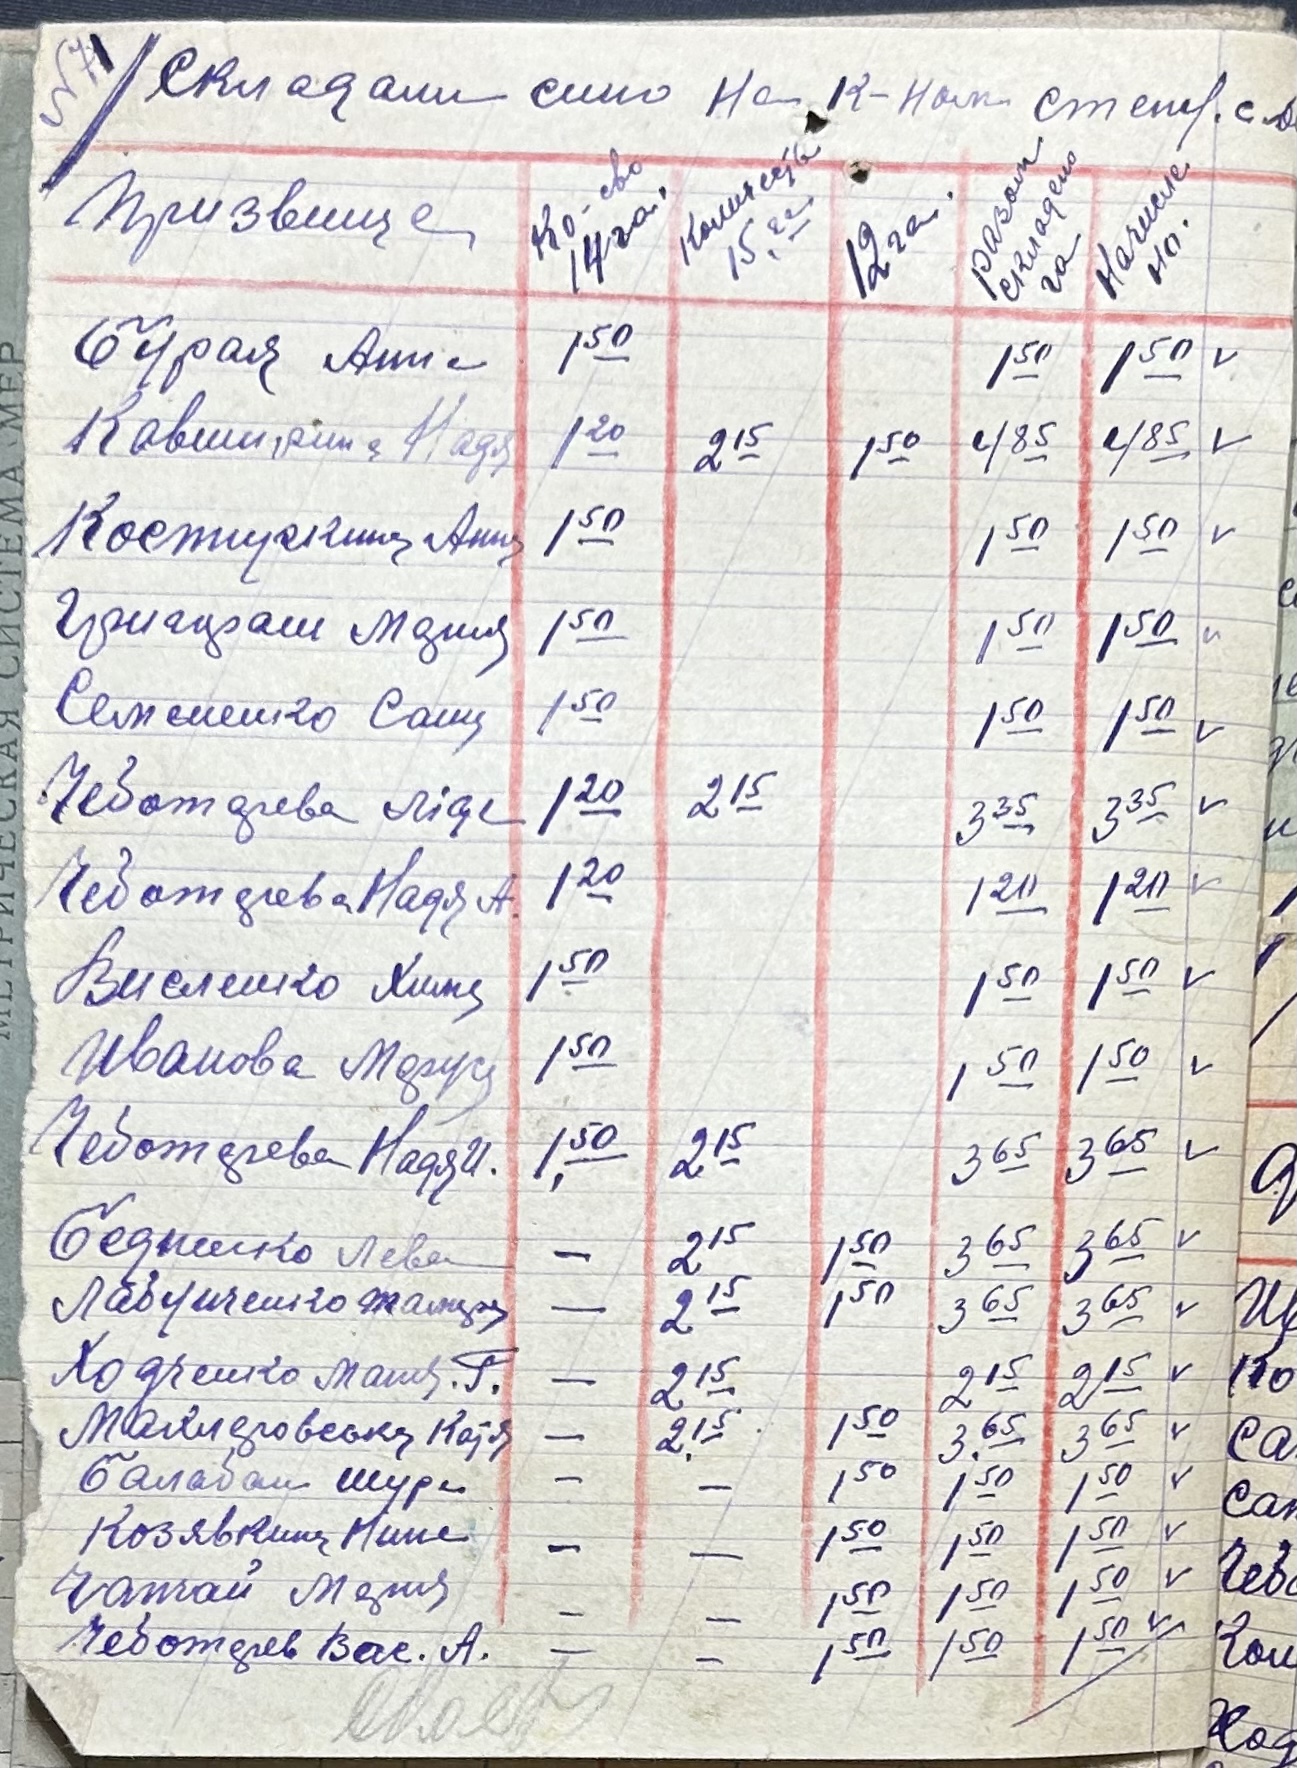 №7
Складали сино на К-ном степу. с
Призвище Ко-сво 14 га. Количество 15 га 12 га. разом складено га Начисле но.
Бурая Анна 1 50 1 50 1 50 v
Кавширина Надя 1 20 2 15 1 50 4 85 4 85 v
Костиркина Анна 1 50 1 50 1 50 v
Григораш Мария 1 50 1 50 1 50 v
Семененко Саша 1 50 1 50 1 50 v
Чеботарева Ліда 1 20 2 15 3 35 3 35 v
Чеботарева Надя А. 1 20 1 20 1 20 v
Висленко 1 50 1 50 1 50 v
Иванова Маруся 1 50 1 50 1 50 v
Чеботарева Надя И. 1 50 2 15 3 65 3 65 v
Бедненко Лева — 2 15 1 50 3 65 3 65 v
Лабунченко — 2 15 1 50 3 65 3 65 v
Ходченко Маня. Г. — 2 15 2 15 2 15 v
Катя — 2 15 1 50 3 65 3 65 v
Балабан Шура — — 1 50 1 50 1 50 v
Козявкина Нина — — 1 50 1 50 1 50 v
Мария — — 1 50 1 50 1 50 v
Чеботарев Вас. А. — — 1 50 1 50 1 50 v
МЕТРИЧЕСКАЯ СИСТЕМА МЕР